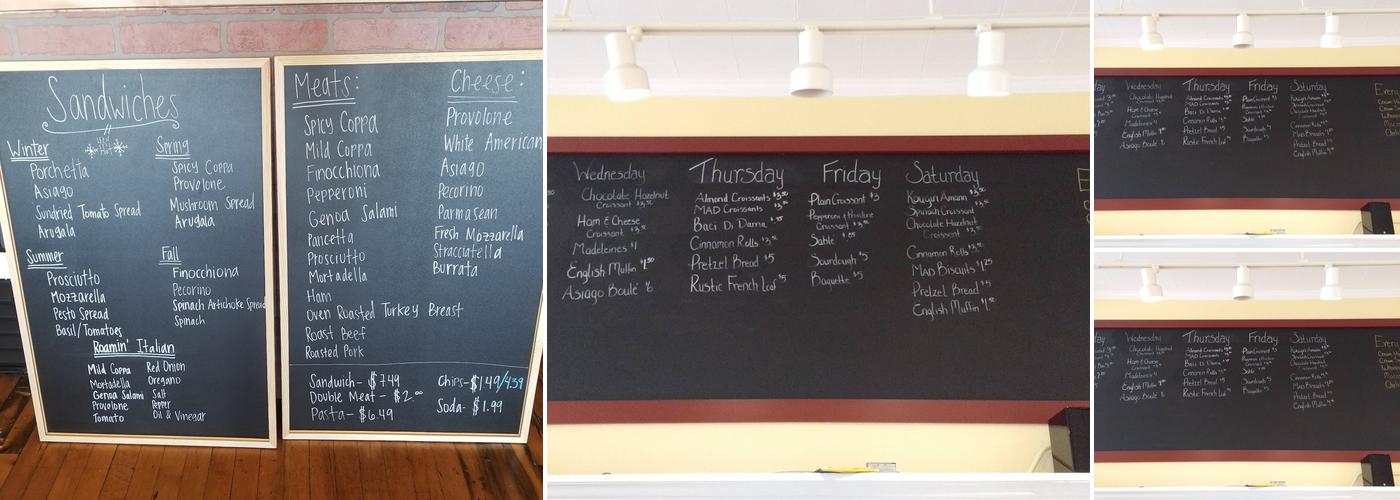 Sandwiches
Winter
Porchetta
Asiago
Sundried Tomato Spread
Arugala
Spring
Spicy Coppa
Provolone
Mushroom Spread
Arugala
Summer
Prosciutto
Mozzarella
Pesto Spread
Basil/Tomatoes
Fall
Finocchiona
Pecorino
Spinach Artichoke Spread
Spinach
Roamin' Italian
Mild Coppa
Mortadella
Genoa Salami
Provolone
Tomato
Red Onion
Oregano
Salt
Pepper
Oil & Vinegar
Meats:
Spicy Coppa
Mild Coppa
Finocchiona
Pepperoni
Genoa Salami
Pancetta
Prosciutto
Mortadella
Ham
Oven Roasted Turkey Breast
Roast Beef
Roasted Pork
Cheese:
Provolone
White American
Asiago
Pecorino
Parmasean
Fresh Mozzarella
Stracciatella
Burrata
Sandwich- $7.49
Double Meat - $2.00
Pasta- $6.49
Chips-$1.49/4.39
Soda- $1.99
Wednesday
Chocolate Hazelnut
Croissant $3.50
Ham & Cheese
Croissant $3.50
Madeleines $1
English Muffin $1.50
Asiago Boule $6
Thursday
Almond Croissants $3.50
MAD Croissants $3.50
Baci Di Dama
Cinnamon Rolls $3.50
Pretzel Bread $5
Rustic French Loaf $5
Friday
Plain Croissant $3
Croissant $3.50
Sable
Sourdough $5
Baguette $5
Saturday
Kouign Amann
Spinach Croissant
Chocolate Hazelnut
Croissant
Cinnamon Rolls $3.50
MAD Biscuits $1.25
Pretzel Bread $5
English Muffin $1.50
Wednesday
Chocolate Hazelnut
Ham & Cheese
Madeleines
English Muffin
Asiago Boule
Thursday
Almond Croissants
MAD Croissants
Baci Di Dama
Cinnamon Rolls
Pretzel Bread
Rustic French Loaf
Friday
Plain Croissant
Sable
Sourdough
Baguette
Saturday
Kouign Amann
Spinach Croissant
Chocolate Hazelnut
Cinnamon Rolls
MAD Biscuits
Pretzel Bread
English Muffin
Wednesday
Chocolate Hazelnut
Ham & Cheese
Madeleines
English Muffin
Asiago Boule
Thursday
Almond Croissants
MAD Croissants
Baci Di Dama
Cinnamon Rolls
Pretzel Bread
Rustic French Loaf
Friday
Plain Croissant
Sable
Sourdough
Baguette
Saturday
Kouign Amann
Spinach Croissant
Chocolate Hazelnut
Cinnamon Rolls
MAD Biscuits
Pretzel Bread
English Muffin